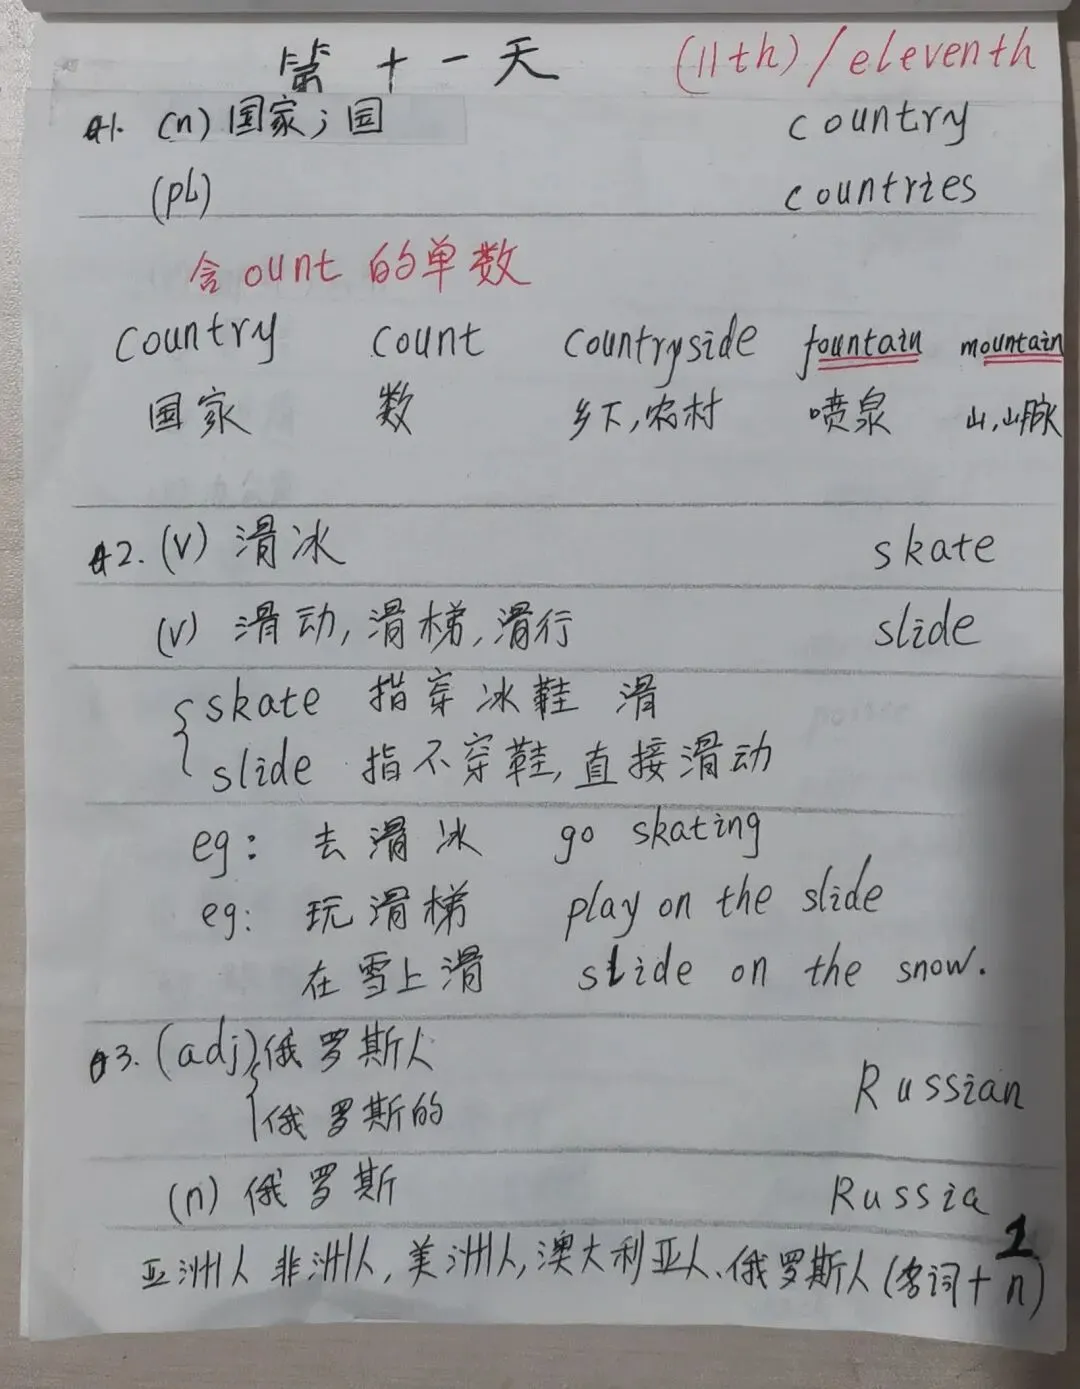 第十一天 (11th)/eleventh
1. (n) 国家;国 country
(pl) countries
含 ount 的单数
country count countryside fountain mountain
国家 数 乡下,农村 喷泉 山,山脉
2. (v) 滑冰 skate
(v) 滑动,滑梯,滑行 slide
skate 指穿冰鞋 滑
slide 指不穿鞋,直接滑动
eg: 去滑冰 go skating
eg: 玩滑梯 play on the slide
在雪上滑 slide on the snow.
3. (adj) 俄罗斯人
俄罗斯的 Russian
(n) 俄罗斯 Russia
亚洲人 非洲人,美洲人,澳大利亚人、俄罗斯人(名词+n)
1